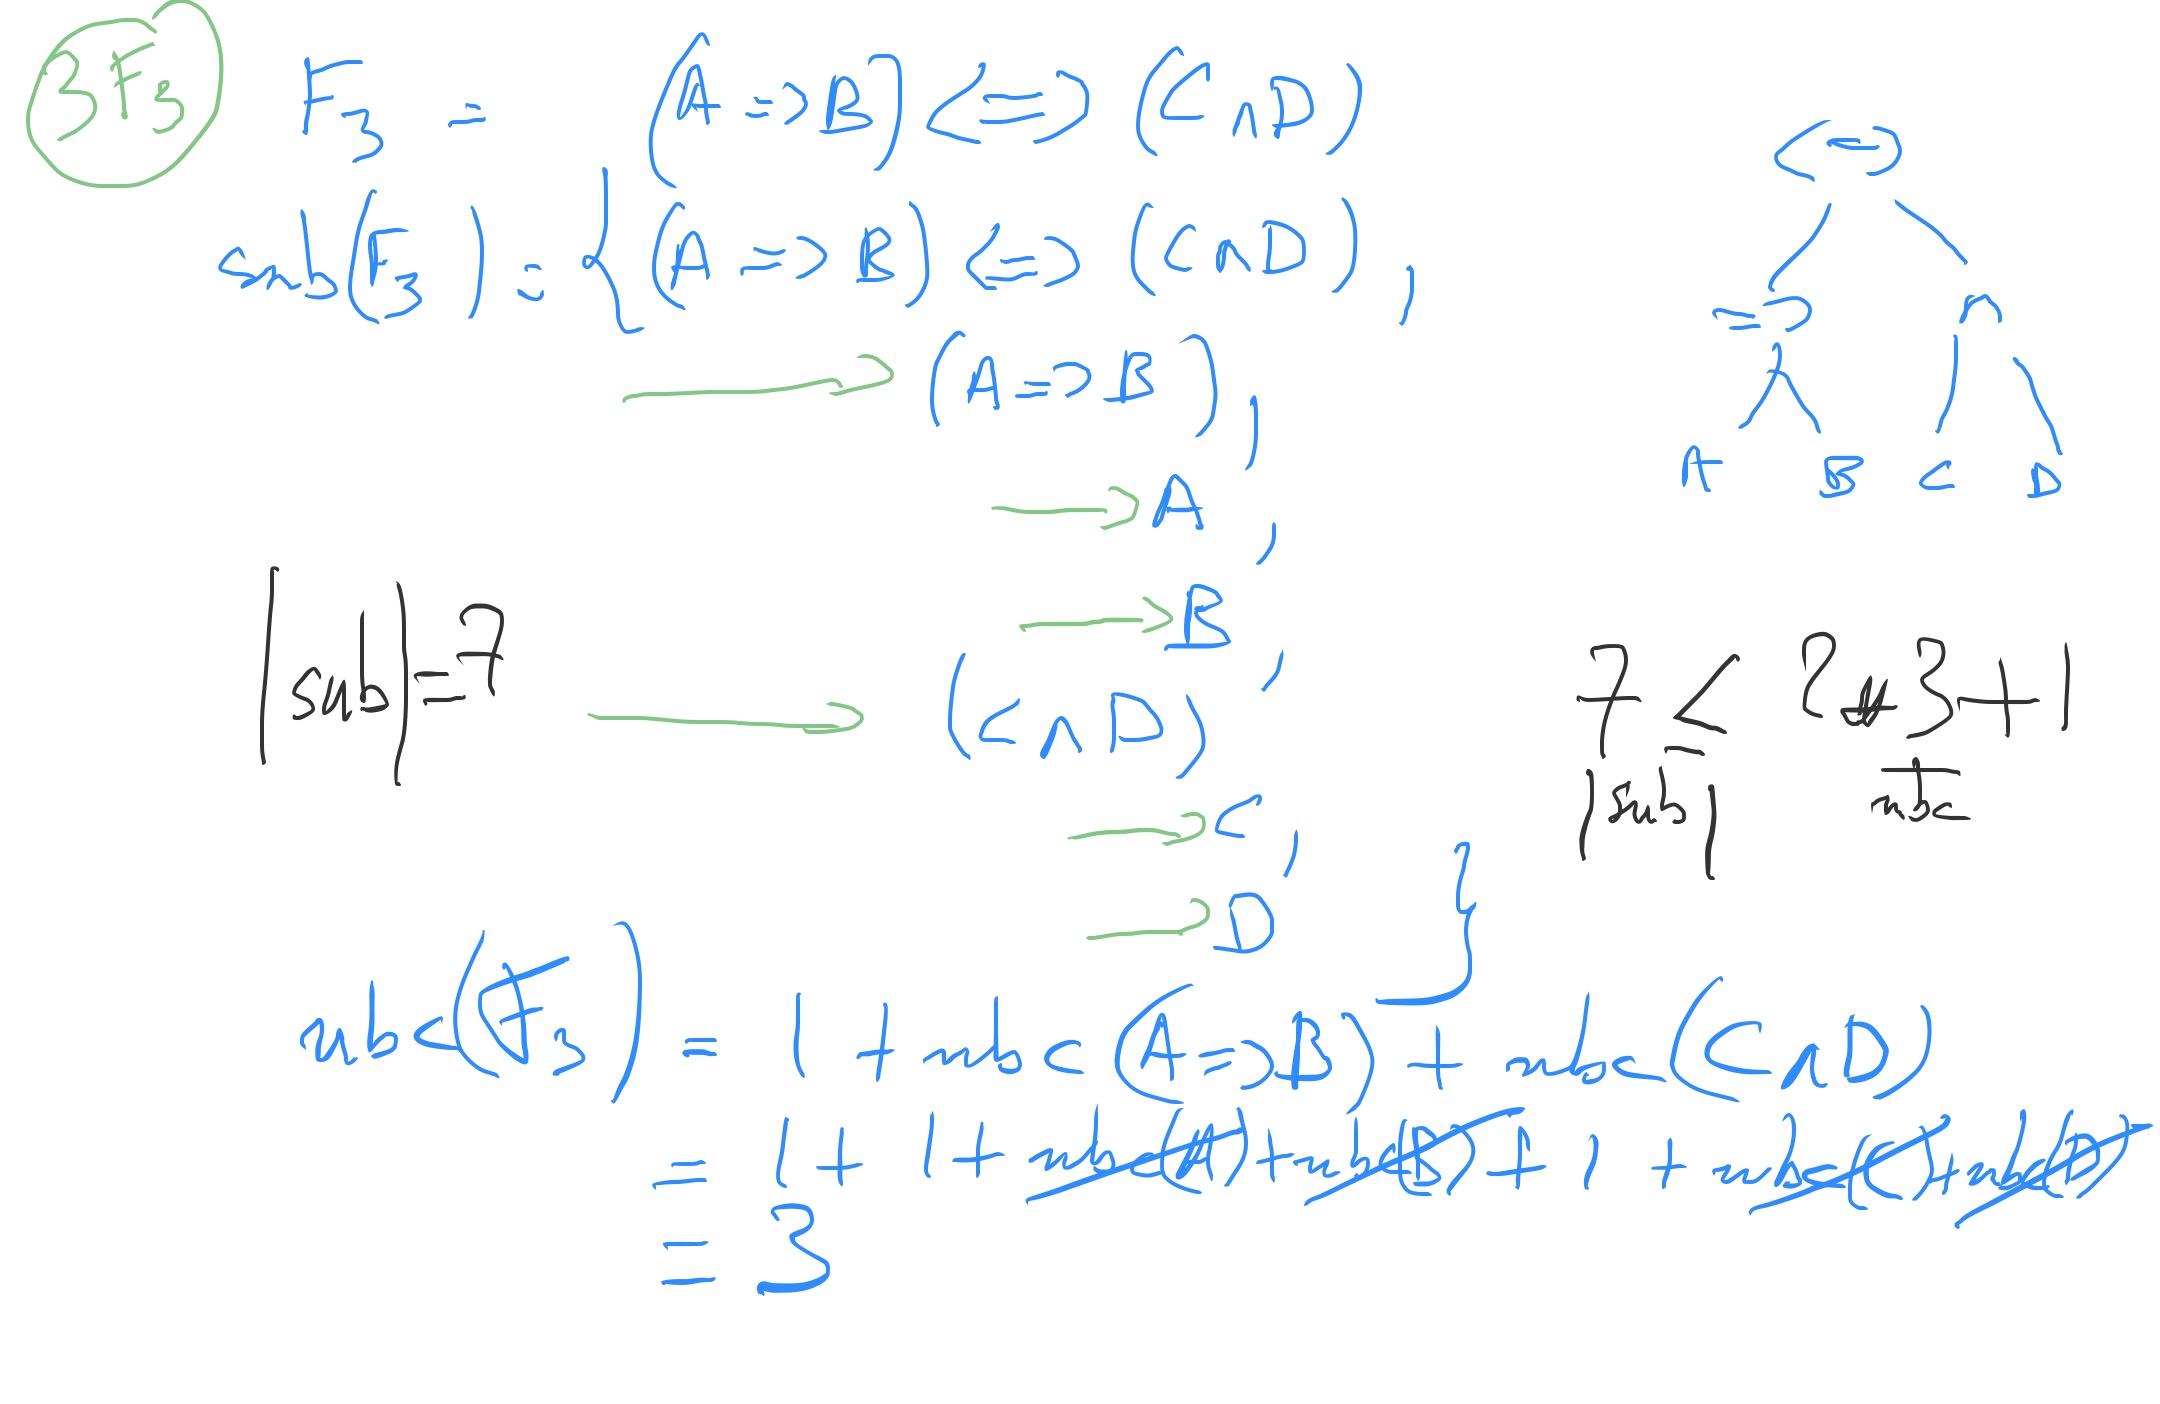 3F₃
F₃ = (A => B) <=> (C ∧ D)
sub(F₃) = {(A => B) <=> (C ∧ D),
(A => B),
A,
B,
(C ∧ D)
C,
D
}
<=>
=> ∧
A B C D
|sub| = 7
7 ≤ 2 * 3 + 1
|sub| nbc
nbc(F₃) = 1 + nbc(A => B) + nbc(C ∧ D)
= 1 + 1 + nbc(A) + nbc(B) + 1 + nbc(C) + nbc(D)
= 3